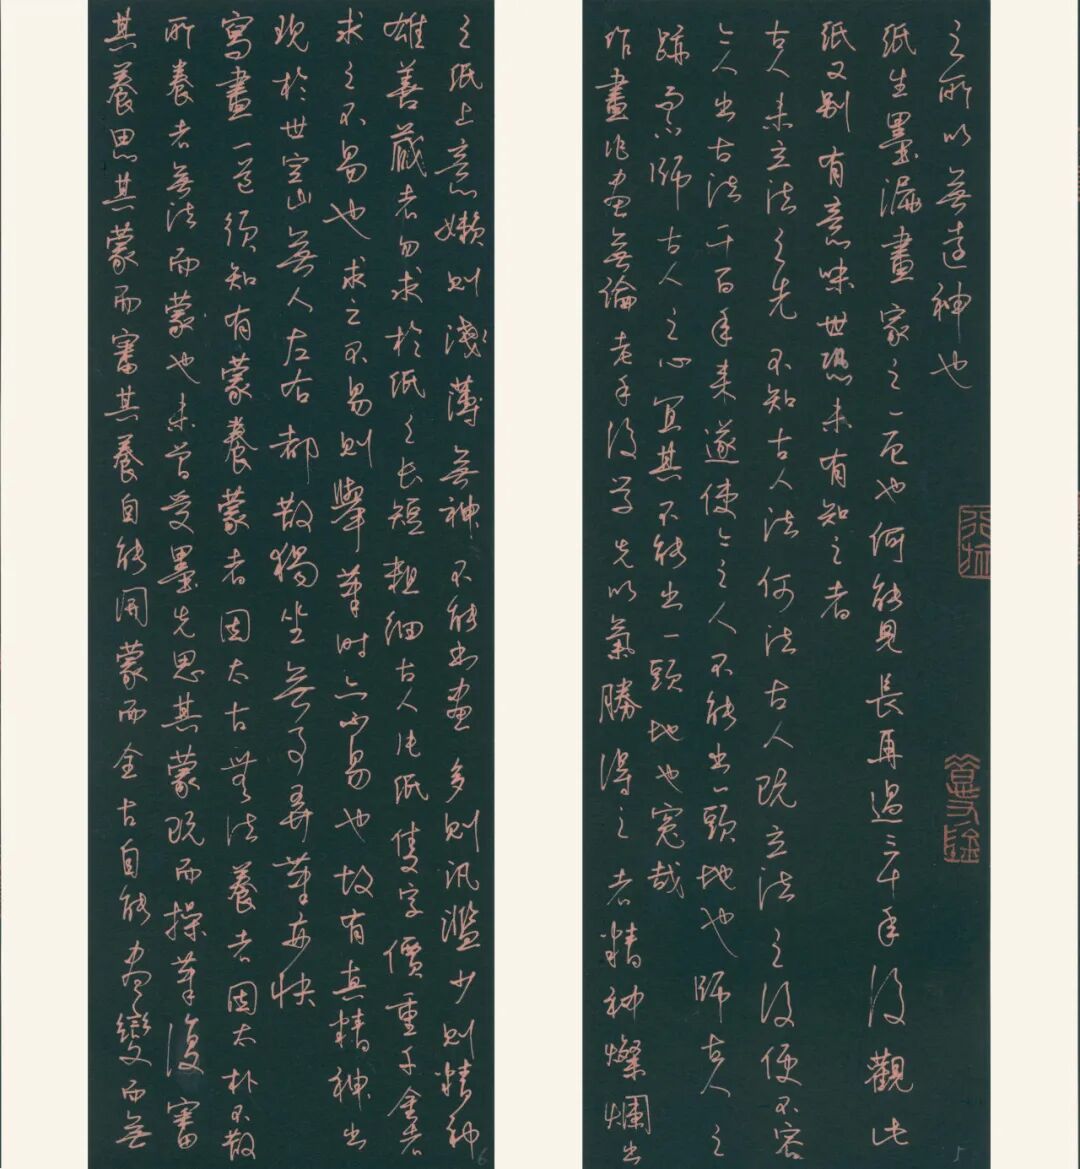 之所以無遠神也
紙生墨漏畫家之一厄也何能見長再過三十年後觀此
紙又別有意味世恐未有知之者
古人未立法之先不知古人法何法古人既立法之後便不容
今人出古法千百年來遂使今之人不能出一頭地也師古人之
跡而不師古人之心宜其不能出一頭地也冤哉
作畫作書無論老手後學先以氣勝得之者精神燦爛出
5
之紙上意懶則淺薄無神不能書畫多則汎濫少則精神
雄善藏者勿求於紙之長短粗細古人片紙隻字價重千金者
求之不易也求之不易則舉筆時亦不易也故有真精神出
現於世空山無人左右都散獨坐無事弄筆亦快
寫畫一道須知有蒙養蒙者因太古無法養者因太朴不散
所養者無法而蒙也未曾受墨先思其蒙既而操筆復審
其養思其蒙而審其養自能開蒙而全古自能盡變而無
6